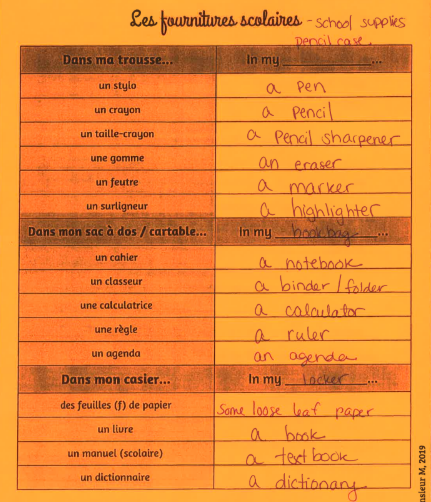 Les fournitures scolaires - school supplies
pencil case
Dans ma trousse... In my ________...
un stylo a pen
un crayon a pencil
un taille-crayon a pencil sharpener
une gomme an eraser
un feutre a marker
un surligneur a highlighter
Dans mon sac à dos / cartable... In my bookbag...
un cahier a notebook
un classeur a binder / folder
une calculatrice a calculator
une règle a ruler
un agenda an agenda
Dans mon casier... In my locker...
des feuilles (f) de papier Some loose leaf paper
un livre a book
un manuel (scolaire) a textbook
un dictionnaire a dictionary
nsieur M, 2019